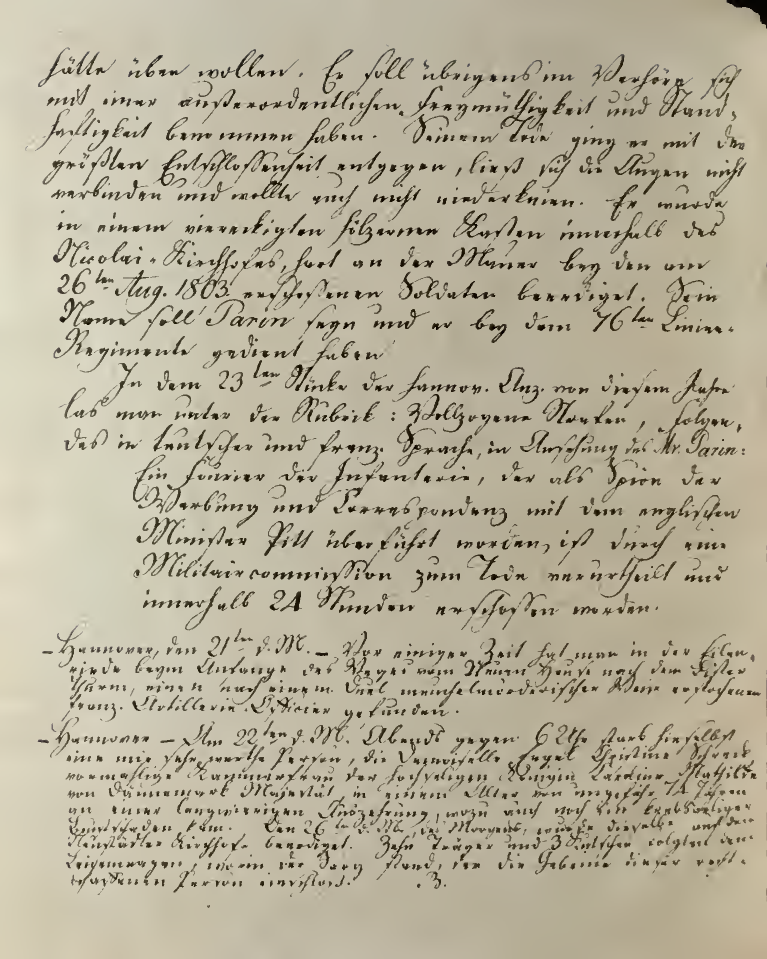 hätte üben wollen. Er soll übrigens im Verhöre sich
mit einer außerordentlichen Freymüthigkeit und Stand-
haftigkeit benommen haben. Seinem Tode ging er mit der
größten Entschlossenheit entgegen, ließ sich die Augen nicht
verbinden und wollte auch nicht niederknien. Er wurde
in einem viereckigten hölzernen Kasten innerhalb des
Nicolai-Kirchhofes, hart an der Mauer bey den am
26ten Aug. 1803 erschossenen Soldaten beerdiget. Sein
Name soll Parin seyn und er bey dem 76ten Linien-
Regimente gedient haben
In dem 23ten Stücke der Hannov. Anz. von diesem Jahre
las man unter der Rubrik: Vollzogene Strafen, Folgen-
des in teutscher und franz. Sprache, in Ansehung des Mr. Parin:
Ein Fourier der Infanterie, der als Spion der
Werbung und Correspondenz mit dem englischen
Minister Pitt überführt worden, ist durch eine
Militaircommission zum Tode verurtheilt und
innerhalb 24 Stunden erschossen worden.
– Hannover, den 21ten d. M. – Vor einiger Zeit hat man in der Eilen-
riede beym Anfange des Weges vom Neuen Hause nach dem
thurm, einen nach einem Duel meuchelmörderischer Weise erstochenen
franz. Artillerie-Officier gefunden.
– Hannover – Am 22ten d. M. Abends gegen 6 Uhr starb hieselbst
eine mir sehr werthe Person, die Demoiselle Christine
vormahlige Kammerfrau der hochseligen Königin Caroline Mathilde
von Dännemark Majestät, in einem Alter von ungefähr Jahren
an einer langwierigen Auszehrung, wozu auch noch ein
kam. Den 26ten d. M., des Morgens, wurde dieselbe auf dem
Neustädter Kirchhofe beerdiget. Zehn Träger und 3 Kutschen folgten dem
Leichenwagen, worin der Sarg stand, der die Gebeine dieser recht-
schaffenen Person einschloß.